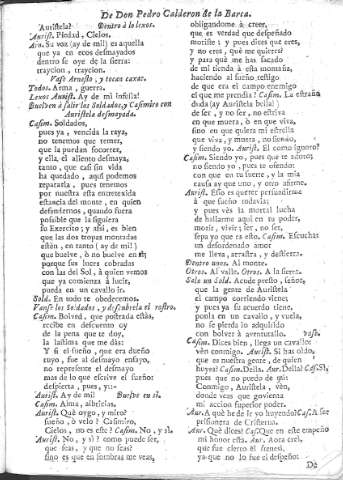 De Don Pedro Calderon de la Barca.
Auristela? Dentro à lo lexos.
Aurist. Piedad, Cielos.
Arn. Su voz (ay de mì!) es aquella
que ya en ecos desmayados
dentro se oye de la sierra:
traycion, traycion.
Vase Arnesto, y tocan caxas.
Todos. Arma, guerra.
Lexos Aurist. Ay de mi infelìz!
Buelven à salir los Soldados, y Casimiro con
Auristela desmayada.
Casim. Soldados,
pues ya, vencida la raya,
no tenemos que temer,
que la puedan socorrer,
y ella, el aliento desmaya,
tanto, que casi sin vida
ha quedado, aqui podemos
repararla, pues tenemos
por nuestra esta entretexida
estancia del monte, en quien
defendernos, quando fuera
possible que la siguiera
su Exercito; y assi, es bien
que las dos tropas montadas
estèn, en tanto (ay de mì!)
que buelve, ò no buelve en sì
porque sus luces cobradas
con las del Sol, à quien vemos
que ya comienza à lucir,
pueda en un cavallo ir.
Sold. En todo te obedecemos.
Vanse los Soldados, y descubrela el rostro.
Casim. Bolved, que postrada estàs,
recibe en descuento oy
de la pena que te doy,
la lastima que me dàs:
Y si el sueño, que era dueño
tuyo, fue al desmayo ensayo,
no represente el desmayo
mas de lo que escrive el sueño:
despierta, pues, y:-
Aurist. Ay de mì! Buelve en sì.
Casim. Alma, albricias.
Aurist. Què oygo, y miro?
sueño, ò velo? Casimiro,
Cielos, no es este? Casim. No, y sì.
Aurist. No, y sì? como puede ser,
que seas, y que no seas?
sino es que en sombras me veas,
obligandome à creer,
que es verdad que despeñado
moriste; y pues dices que eres,
y no eres, què me quieres?
y para què me has sacado
de mi tienda à esta montaña,
haciendo al sueño testigo
de que era el campo enemigo
el que me prendia? Casim. La estraña
duda (ay Auristela bella!)
de ser, y no ser, no estriva
en que muera, ò en que viva,
sino en que quiera mi estrella
que viva, y muera, no siendo,
y siendo yo. Aurist. El como ignoro?
Casim. Siendo yo, pues que te adoro;
no siendo yo, pues te ofendo:
con que en tu suerte, y la mia
causa ay que uno, y otro afirme.
Aurist. Esso es querer persuadirme
à que sueño todavia;
y pues vès la mortal lucha
de hallarme aqui en tu poder,
morir, vivir; ser, no ser,
sepa yo que es esto. Casim. Escucha:
un desordenado amor
me lleva, arrastra, y destierra.
Dentro unos. Al monte.
Otros. Al valle. Otros. A la sierra.
Sale un Sold. Acude presto, señor,
que la gente de Auristela
el campo corriendo viene;
y pues ya su acuerdo tiene,
ponla en un cavallo, y vuela,
no se pierda lo adquirido
con bolver à aventurallo. vase.
Casim. Dices bien, llega un cavallo:
vèn conmigo. Aurist. Si has oìdo,
que es nuestra gente, de quien
huyes? Casim. Della. Aur. Della? Cas. Sì,
pues que no puede de mi
Conmigo, Auristela, vèn,
donde veas que govierna
mi accion superior poder.
Aur. A què he de ir yo huyendo? Cas. A ser
prisionera de Cristerna.
Aur. Què dices? Casim. Que en este empeño
mi honor està. Aur. Aora creì,
que fue cierto el sueño,
ya que no lo fue el despeño:
De